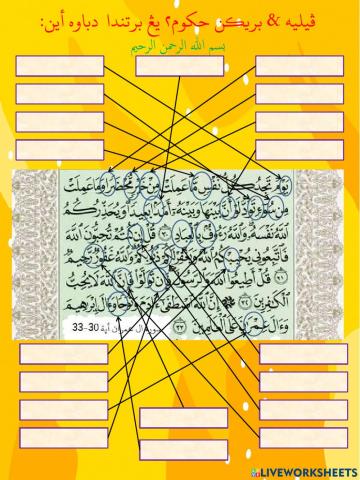 ڤيليه & بريكن حكوم؟ يڠ برتندا دباوه أين:
بسم الله الرحمن الرحيم
يَوْمَ تَجِدُ كُلُّ نَفْسٍ مَّا عَمِلَتْ مِنْ خَيْرٍ مُّحْضَرًا وَمَا عَمِلَتْ
مِن سُوٓءٍ تَوَدُّ لَوْ أَنَّ بَيْنَهَا وَبَيْنَهُۥٓ أَمَدًۢا بَعِيدًا وَيُحَذِّرُكُمُ
ٱللَّهُ نَفْسَهُۥ وَٱللَّهُ رَءُوفٌۢ بِٱلْعِبَادِ ٣٠ قُلْ إِن كُنتُمْ تُحِبُّونَ ٱللَّهَ
فَٱتَّبِعُونِى يُحْبِبْكُمُ ٱللَّهُ وَيَغْفِرْ لَكُمْ ذُنُوبَكُمْ وَٱللَّهُ غَفُورٌ رَّحِيمٌ
٣١ قُلْ أَطِيعُوا۟ ٱللَّهَ وَٱلرَّسُولَ فَإِن تَوَلَّوْا۟ فَإِنَّ ٱللَّهَ لَا يُحِبُّ
ٱلْكَٰفِرِينَ ٣٢ إِنَّ ٱللَّهَ ٱصْطَفَىٰٓ ءَادَمَ وَنُوحًا وَءَالَ إِبْرَٰهِيمَ
وَءَالَ عِمْرَٰنَ عَلَى ٱلْعَٰلَمِينَ ٣٣
سورة ال عمران أية 30-33
LIVEWORKSHEETS